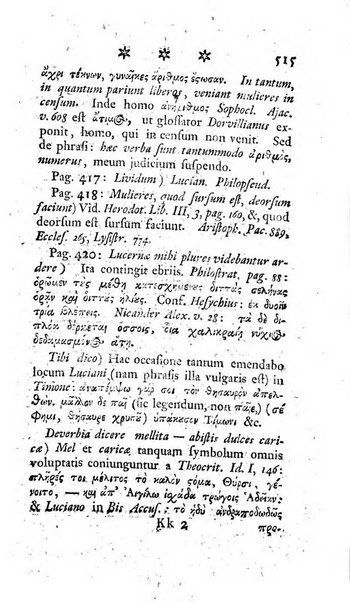 * * * 515
ἄχρι τέκνων, γυναῖκες ἀριθμὸς ἔσωσαν. In tantum,
in quantum pariunt liberos, veniant mulieres in
censum. Inde homo ἀνήριθμος Sophocl. Ajac.
v. 608 est ἄτιμ, ut glossator Dorvillianus ex-
ponit, homo, qui in censum non venit. Sed
de phrasi: hæc verba sunt tantummodo ἀριθμὸς,
numerus, meum judicium suspendo.
Pag. 417: Lividum) Lucian. Philopseud.
Pag. 418: Mulieres, quod sursum est, deorsum
faciunt) Vid. Herodot. Lib. III, 3, pag. 160, &, quod
deorsum est sursum faciunt. Aristoph. Pac. 889,
Eccles. 265, Lysistr. 774.
Pag. 420: Lucernæ mihi plures videbantur ar-
dere) Ita contingit ebriis. Philostrat, pag. 88:
ὁρῶμεν τὰς μέθῃ κατισχημένας διττὰς σελήνας
ὁρᾶν καὶ διττὰς ἡλίες. Conf. Hesychius: ἐκ δυοῖν
τρία βλέπεις. Nicander Alex. v. 28: τὰ δὲ δι-
πλόα δέρκεται ὄσσοις, οἷα χαλικραίη νύχιΘ
δεδαμασμένΘ ἄτῃ.
Tibi dico) Hac occasione tantum emendabo
locum Luciani (nam phrasis illa vulgaris est) in
Timone: ἀναπέμψω γάρ σοι τὸν θησαυρὸν ἀπελ-
θών. μᾶλλον δὲ παῖ (sic legendum, non παῖε,) (σέ
φημι, θησαυρὲ χρυσᾶ) ὑπάκεσον Τίμωνι &c.
Deverbia dicere mellita — abistis dulces cari-
cæ) Mel et caricæ tanquam symbolum omnis
voluptatis coniunguntur a Theocrit. Id. I, 146:
πλῆρές τοι μέλιτος τὸ καλὸν στόμα, Θύρσι, γέ-
νοιτο, — καὶ ἀπ' Αἰγίλω ἰσχάδα τρώγοις Ἀδεῖαν:
& Luciano in Bis Accus.: τὸ ἡδὺ ἀνδραποδωδῶς
Kk 2 προ-